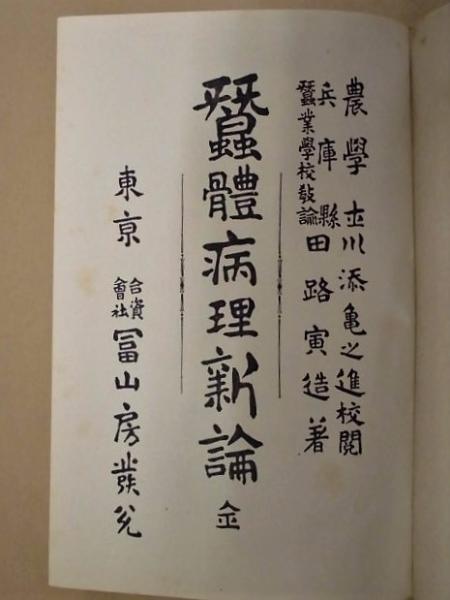 農學士川添亀之進校閲
兵庫縣蠶業學校教諭田路寅造著
蠶體病理新論 全
東京 合資會社冨山房發兌